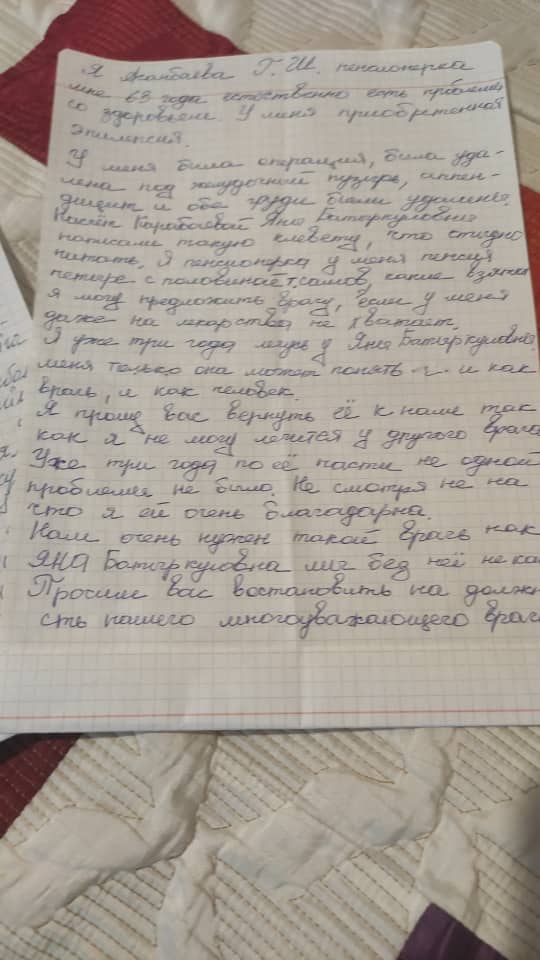 Я Жанбаева Г. Ш. пенсионерка
мне 63 года естественно есть проблемы
со здоровьем. У меня приобретенная
эпилепсия.
У меня была операция, была уда-
лена под желудочный пузырь, аппен-
дицит и обе груди были удалины.
Насчёт Карабаевой Яне Батыркуловне
написали такую клевету, что стыдно
читать. Я пенсионерка у меня пенсия
четыре с половиной т. сомов, какие взятки
я могу предложить врачу, если у меня
даже на лекарства не хватает.
Я уже три года лечусь у Яны Батыркуловны
меня только она может понять и как
врачь, и как человек.
Я прошу вас вернуть её к нам так
как я не могу лечится у другого врача
Уже три года по её части не одной
проблемы не было. Не смотря не на
что я ей очень благадарна.
Нам очень нужен такой врачь как
ЯНА Батыркуловна мы без неё не
Просим вас востановить на должн
сть нашего многоуважающего врача